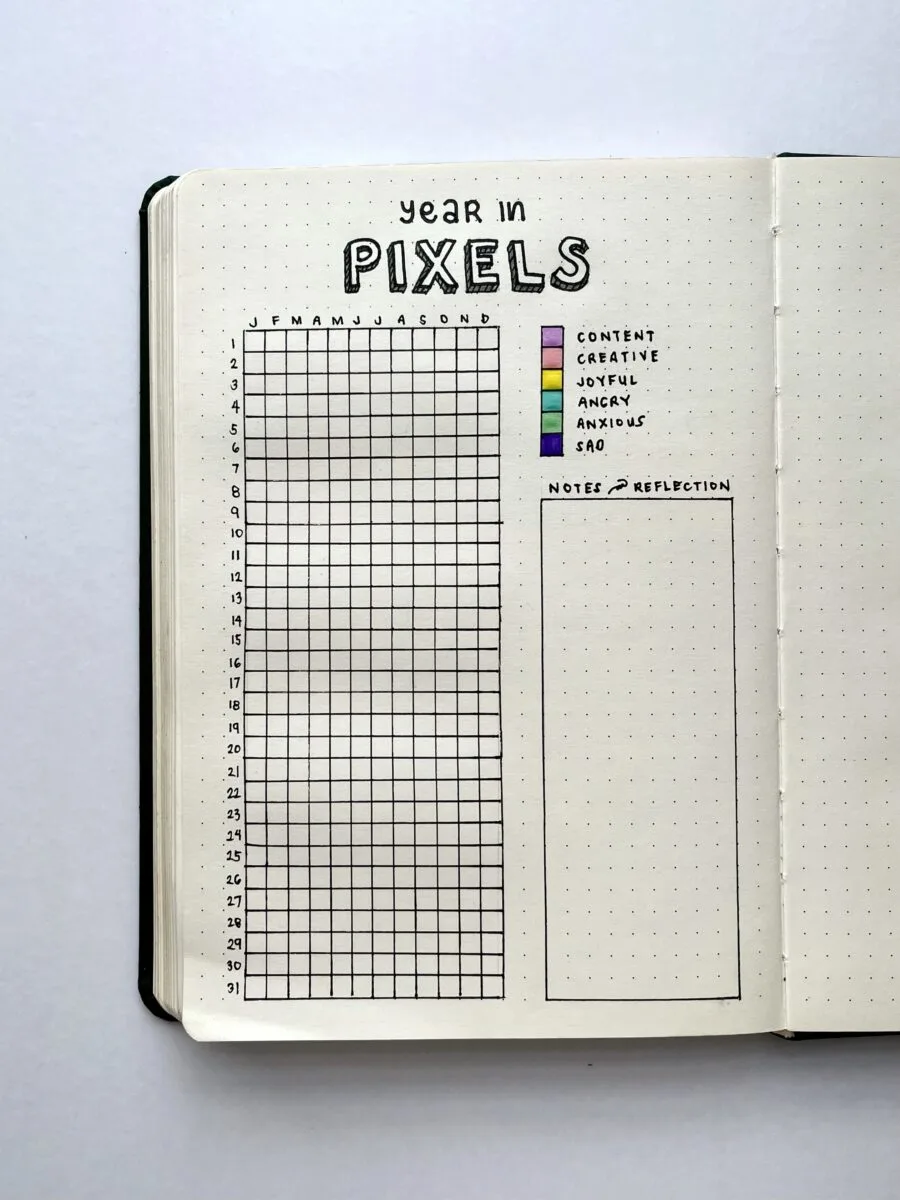 year in
PIXELS
J F M A M J J A S O N D
1
2
3
4
5
6
7
8
9
10
11
12
13
14
15
16
17
18
19
20
21
22
23
24
25
26
27
28
29
30
31
CONTENT
CREATIVE
JOYFUL
ANGRY
ANXIOUS
SAD
NOTES REFLECTION